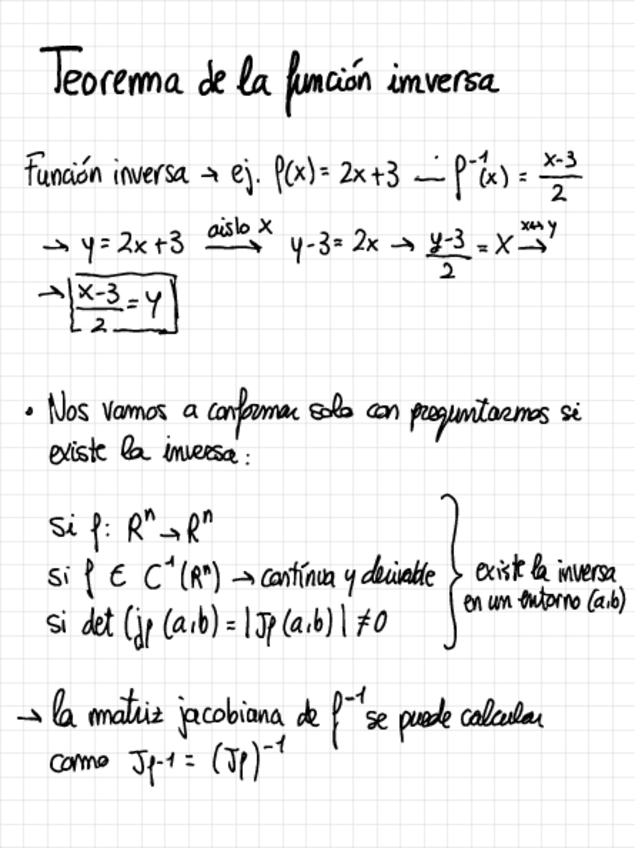 Teorema de la función inversa
Función inversa → ej. f(x) = 2x+3 ∸ f⁻¹(x) = (x-3)/2
→ y = 2x+3 aislo x → y-3 = 2x → (y-3)/2 = x x↔y →
→ (x-3)/2 = y
• Nos vamos a conformar solo con preguntarnos si
existe la inversa:
si f: Rⁿ → Rⁿ
si f ∈ C¹(Rⁿ) → contínua y derivable
si det (Jf (a,b) = |Jf (a,b)| ≠ 0
} existe la inversa
en un entorno (a,b)
→ la matriz jacobiana de f⁻¹ se puede calcular
como Jf-1 = (Jf)⁻¹